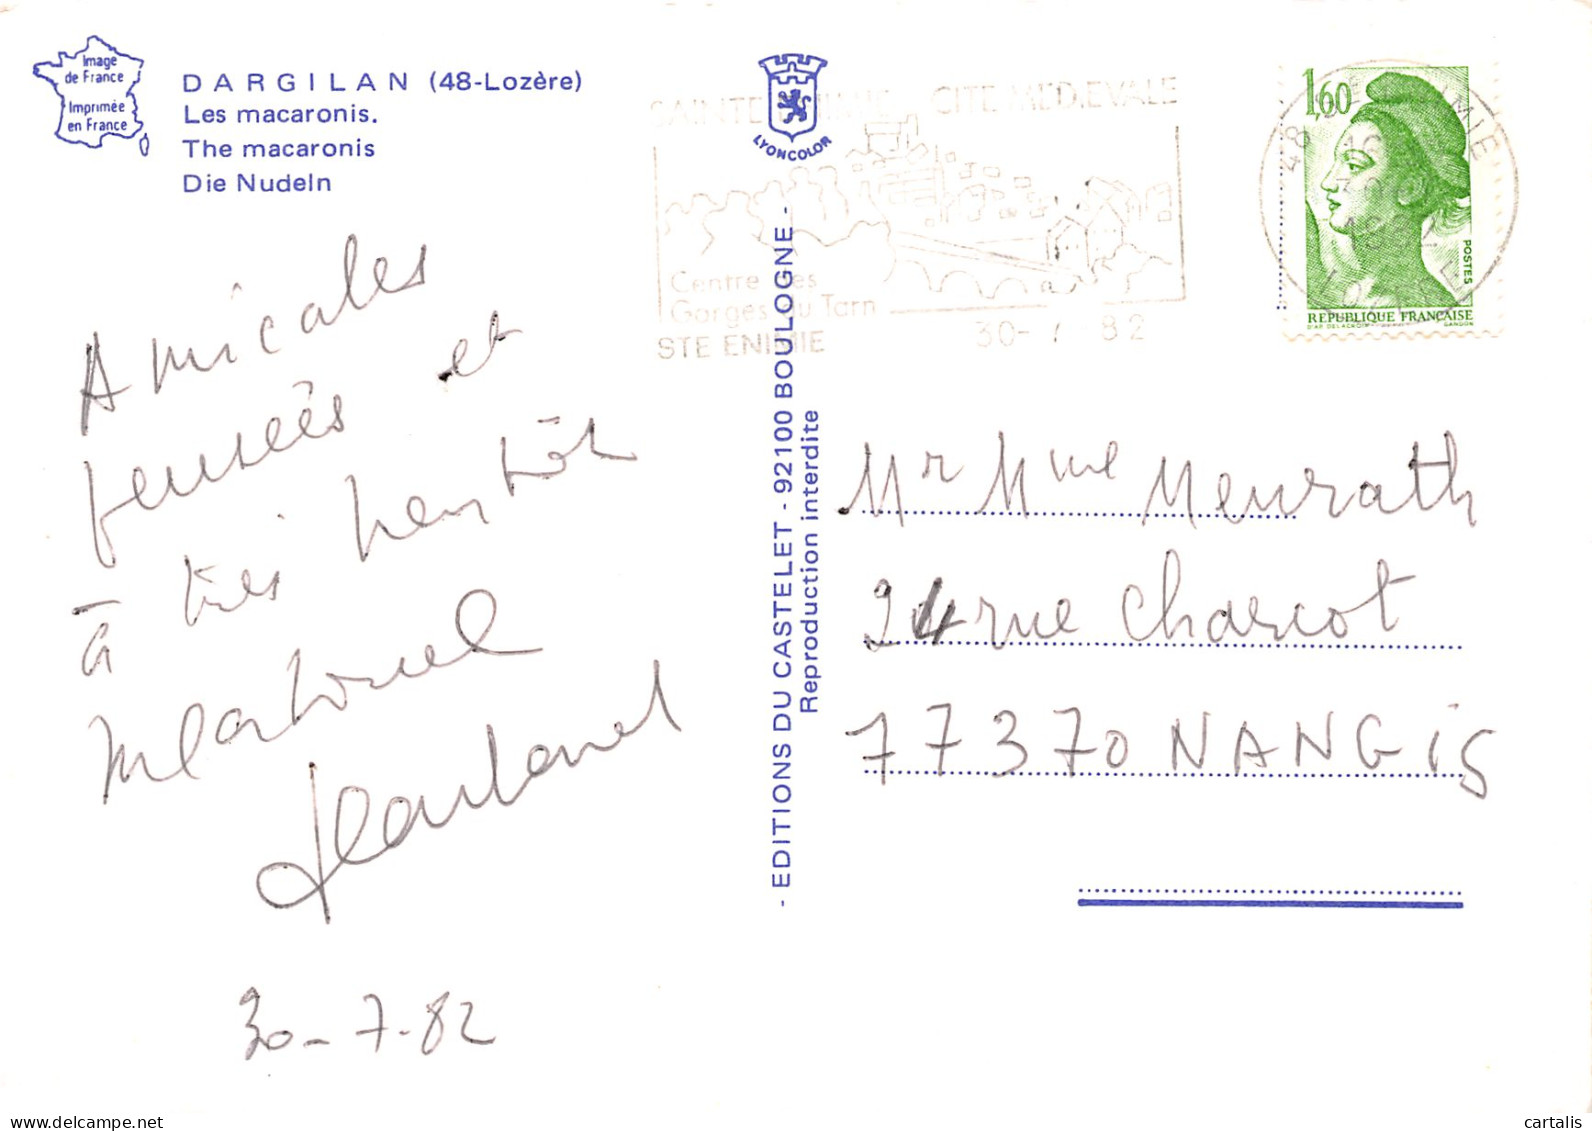 Image
de France
Imprimée
en France
DARGILAN (48-Lozère)
Les macaronis.
The macaronis
Die Nudeln
LYONCOLOR
SAINTE ENIMIE CITE MEDIEVALE
Centre des
Gorges du Tarn
STE ENIMIE 30-7-82
1,60
POSTES
REPUBLIQUE FRANÇAISE
D'AP. DELACROIX GANDON
Amicales
pensées et
à très bientôt
- EDITIONS DU CASTELET - 92100 BOULOGNE -
Reproduction interdite
Mr Mme Meurath
24 rue Charcot
77370 NANGIS
30-7-82
cartalis